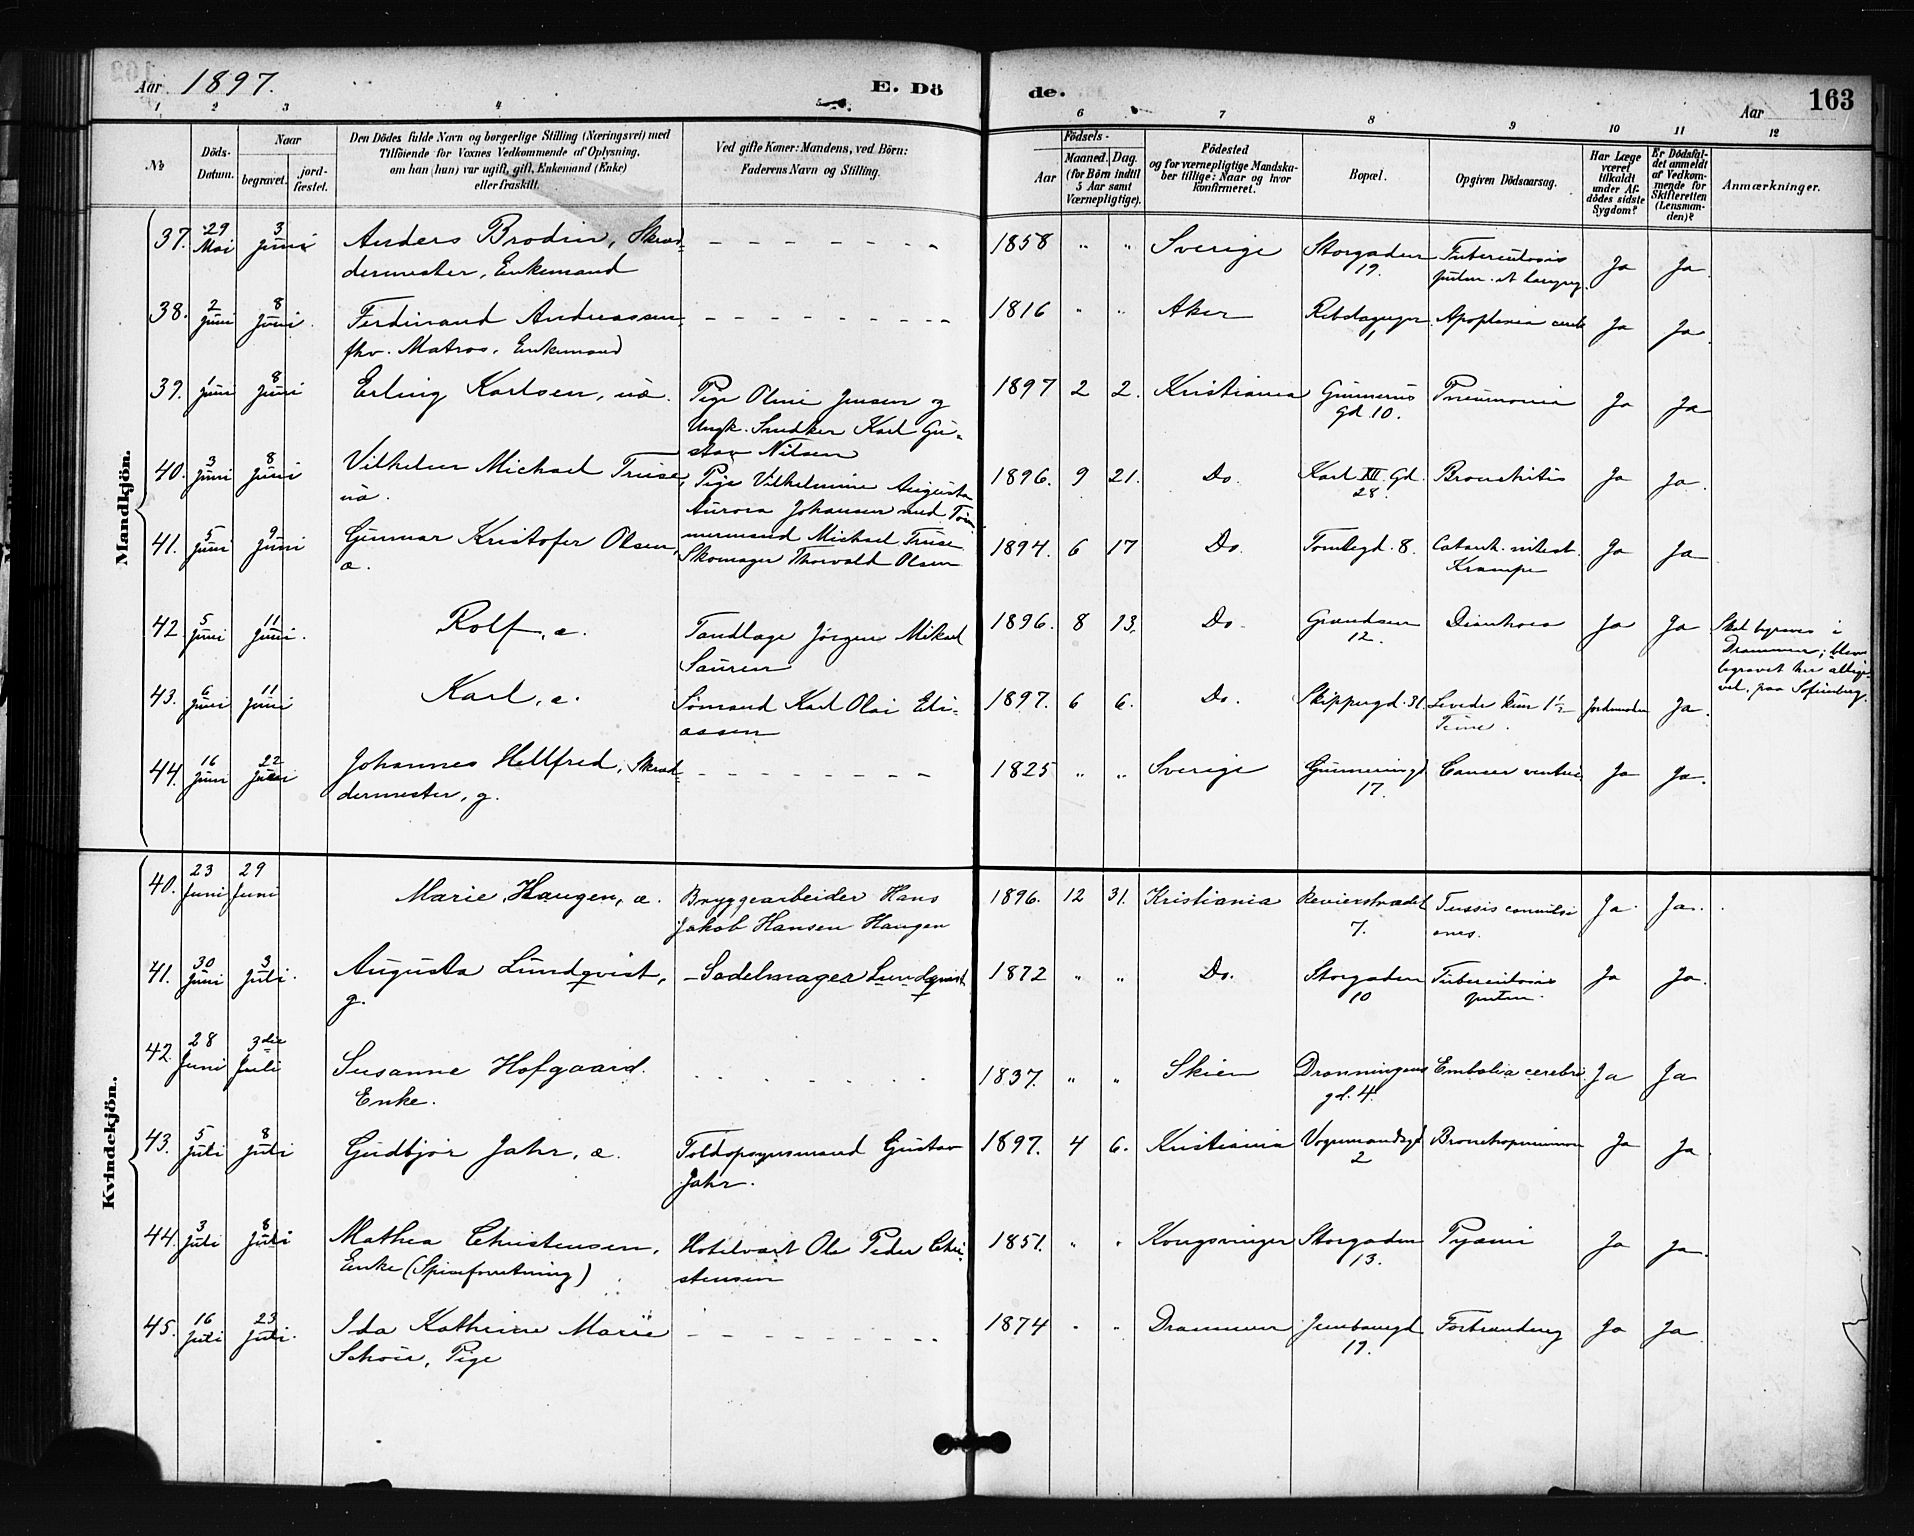 Aar 1897.
E. Dö
de.
Aar
163
1 2 3 4 5 6 7 8 9 10 11 12
No
Döds-Datum.
Naar
begravet.
jord-fæstet.
Den Dödes fulde Navn og borgerlige Stilling (Næringsvei) med
Tilföiende for Voxnes Vedkommende af Oplysning,
om han (hun) var ugift, gift, Enkemand (Enke)
eller fraskilt.
Ved gifte Koner: Mandens, ved Börn:
Faderens Navn og Stilling.
Födsels-
Aar
Maaned.
Dag.
(for Börn indtil
5 Aar samt
Værnepligtige).
Födested
og for værnepligtige Mandska-
ber tillige: Naar og hvor
konfirmeret.
Bopæl.
Opgiven Dödsaarsag.
Har Læge
været
tilkaldt
under Af-
dödes sidste
Sygdom?
Er Dödsfal-
det anmeldt
af Vedkom-
mende for
Skifteretten
(Lensman-
den)?
Anmærkninger.
Mandkjön.
37. 29 Mai 3 Juni Anders Brodin, Skræd- 1858 " " Sverige Storgaden 19. Tuberculosis Ja Ja.
dermester, Enkemand
38. 2 Juni 8 Juni. Ferdinand Andreassen, 1816 " " Aker 1 Apoplexia cereb Ja Ja.
fhv. Matros. Enkemand
39. 1 Juni 8 Juni Erling Karlsen, uæ. Pige Oline Jensen og 1897 2 2. Kristiania Gunnerus gd. 10. Pneumonia Ja Ja
Ungk. Snedker Karl Gu-
stav Nilsen
40. 3 Juni 8 Juni Vilhelm Michael Truse, Pige Vilhelmine Augusta 1896. 9 21. Do. Karl XII. Gd. 28. Bronchitis Ja Ja.
uæ. Aurora Johansen med Töm-
mermand Michael Truse
41. 5 Juni 9 Juni Gunnar Kristofer Olsen, Skomager Thorvald Olsen 1894. 6 17 Do. Tomtegd. 8. Catarrh. intest. Krampe Ja Ja
æ.
42. 5 Juni 11 Juni. Rolf, æ. Tandlæge Jörgen Mikael 1896. 8 13. Do. Grændsen 12. Diarrhoea Ja Ja Skal begraves i
Sauren Drammen; blev
begravet her allige-
vel, paa Sofienberg.
43. 6 Juni 11 Juni Karl, æ. Sömand Karl Olai Eli- 1897. 6 6. Do. Skippergd. 31. Levede kun 1½ Time. Jordmoder Ja.
assen
44. 16 Juni 22 Juni Johannes Hellfred, Skræd- 1825 " " Sverige Gunnerusgd 17. Cancer ventric Ja Ja.
dermester, g.
Kvindekjön.
40. 23 Juni 29 Juni Marie Haugen, æ. Bryggearbeider Hans 1896. 12 31. Kristiania Revierstrædet 7. Tussis convulsi Ja Ja.
Jakob Hansen Haugen ones.
41. 30 Juni 3 Juli. Augusta Lundqvist, Sadelmager Lundqvist 1872 " " Do. Storgaden 10 Tuberculosis pulm. Ja Ja.
g.
42. 28 Juni 3die Juli Susanne Hofgaard. 1837. " " Skien Dronningens gd. 4. Embolia cerebri Ja Ja
Enke.
43. 5 Juli 8 Juli Gudbjör Jahr, æ. Toldopsynsmand Gustav 1897. 4 6. Kristiania Vognmandsgd 2 Bronchopneumon Ja Ja
Jahr.
44. 3 Juli 8 Juli Mathea Christensen, Hotelvært Ole Peder Chri- 1851. " " Kongsvinger Storgaden 13. Pyæmi Ja Ja.
Enke (Spiseforretning) stensen
45. 16 Juli 23 Juli. Ida Kathrine Marie 1874 " " Drammen Jernbanegd 19. Forbrænding Ja Ja.
Pige